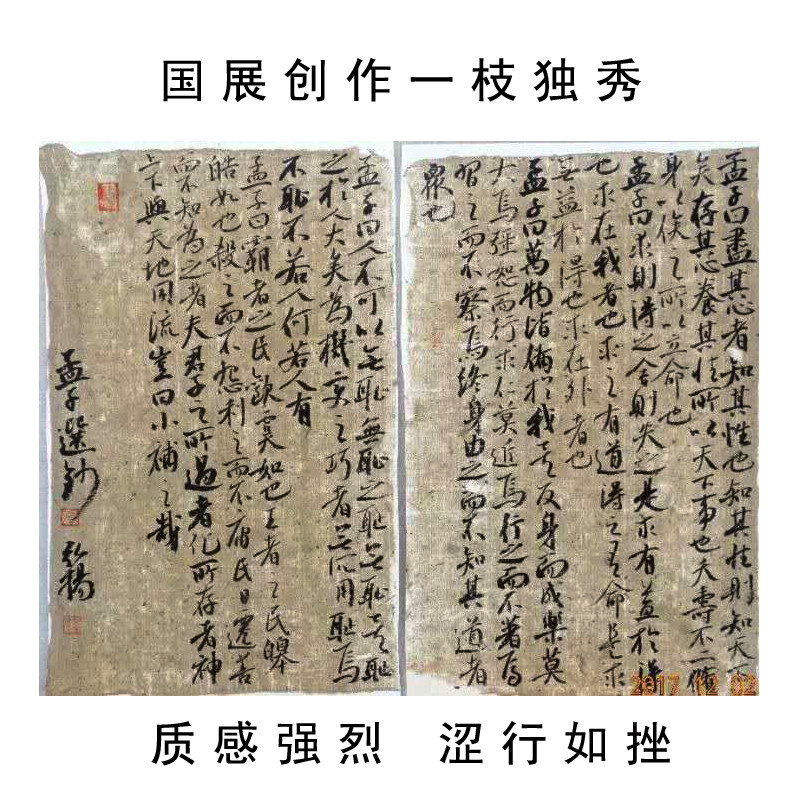 国展创作一枝独秀
孟子曰盡其心者知其性也知其性則知天
矣存其心養其性所以天下事也夭壽不二脩
身以俟之所以立命也
孟子曰求則得之舍則失之是求有益於得
也求在我者也求之有道得之有命是求
無益於得也求在外者也
孟子曰萬物皆備於我矣反身而成樂莫
大焉彊恕而行求仁莫近焉行之而不著焉
習之而不察焉終身由之而不知其道者
眾也
孟子曰人不可以無恥無恥之恥無恥矣恥
之於人大矣為機變之巧者無所用恥焉
不恥不若人何若人有
孟子曰霸者之民歡虞如也王者之民皞
皓如也殺之而不怨利之而不庸民日遷善
而不知為之者夫君子之所過者化所存者神
上下與天地同流豈曰小補之哉
孟子選鈔 弘楊
2017 12 02
质感强烈 涩行如挫